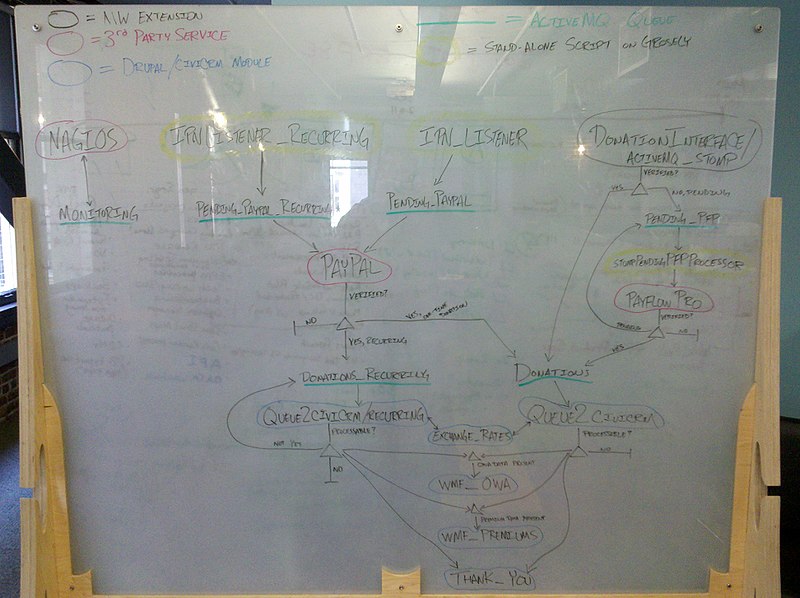 = MW EXTENSION
= 3rd PARTY SERVICE
= DRUPAL/CIVICRM MODULE
= ACTIVEMQ QUEUE
= STAND-ALONE SCRIPT ON GROSELY
NAGIOS
IPNLISTENER_RECURRING
IPN_LISTENER
DONATIONINTERFACE/
ACTIVEMQ_STOMP
VERIFIED?
YES
NO, PENDING
MONITORING
PENDING_PAYPAL_RECURRING
PENDING_PAYPAL
PENDING_PFP
STOMPPENDINGPFPPROCESSOR
PAYPAL
PAYFLOW PRO
VERIFIED?
VERIFIED?
PENDING
NO
YES
NO
YES, ONE-TIME
DONATION
YES, RECURRING
DONATIONS_RECURRING
DONATIONS
QUEUE2CIVICRM/RECURRING
EXCHANGE_RATES
QUEUE2CIVICRM
PROCESSABLE?
PROCESSABLE?
NOT YET
NO
NO
OWA DATA PRESENT
WMF_OWA
PREMIUM DATA PRESENT
WMF_PREMIUMS
THANK_YOU